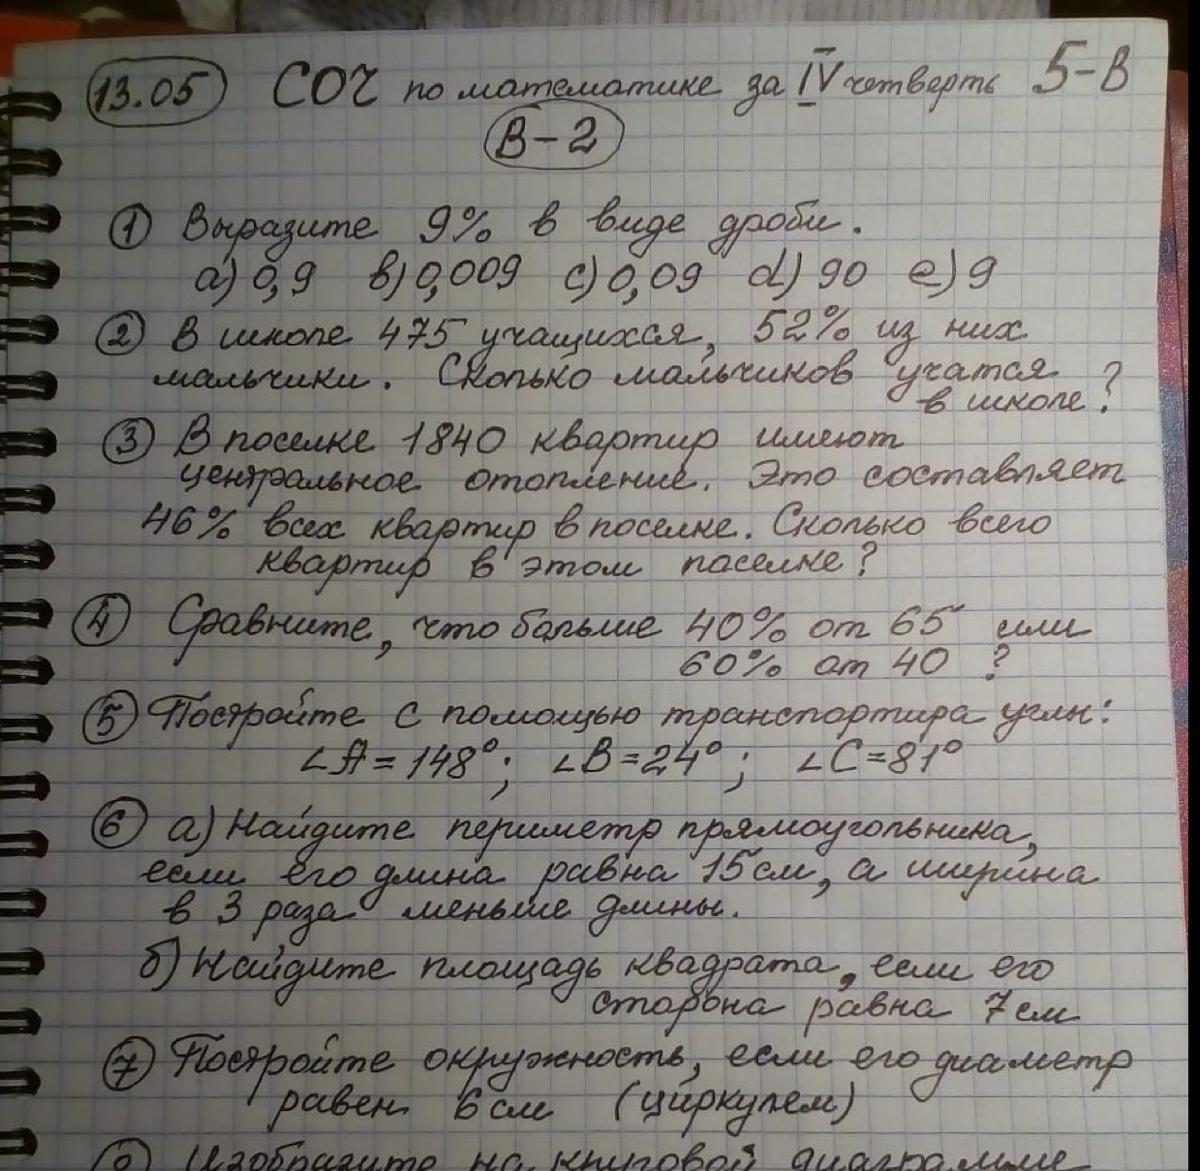 13.05 СОЧ по математике за IV четверть 5-В
В-2
① Выразите 9% в виде дроби.
а) 0,9 в) 0,009 с) 0,09 d) 90 е) 9
② В школе 475 учащихся, 52% из них
мальчики. Сколько мальчиков учатся
в школе?
③ В поселке 1840 квартир имеют
центральное отопление. Это составляет
46% всех квартир в поселке. Сколько всего
квартир в этом поселке?
④ Сравните, что больше 40% от 65 или
60% от 40 ?
⑤ Постройте с помощью транспортира углы:
∠A = 148°; ∠B = 24°; ∠C = 81°
⑥ а) Найдите периметр прямоугольника,
если его длина равна 15 см, а ширина
в 3 раза меньше длины.
б) Найдите площадь квадрата, если его
сторона равна 7 см
⑦ Постройте окружность, если его диаметр
равен 6 см (циркулем)
⑧ Изобразите на круговой диаграмме